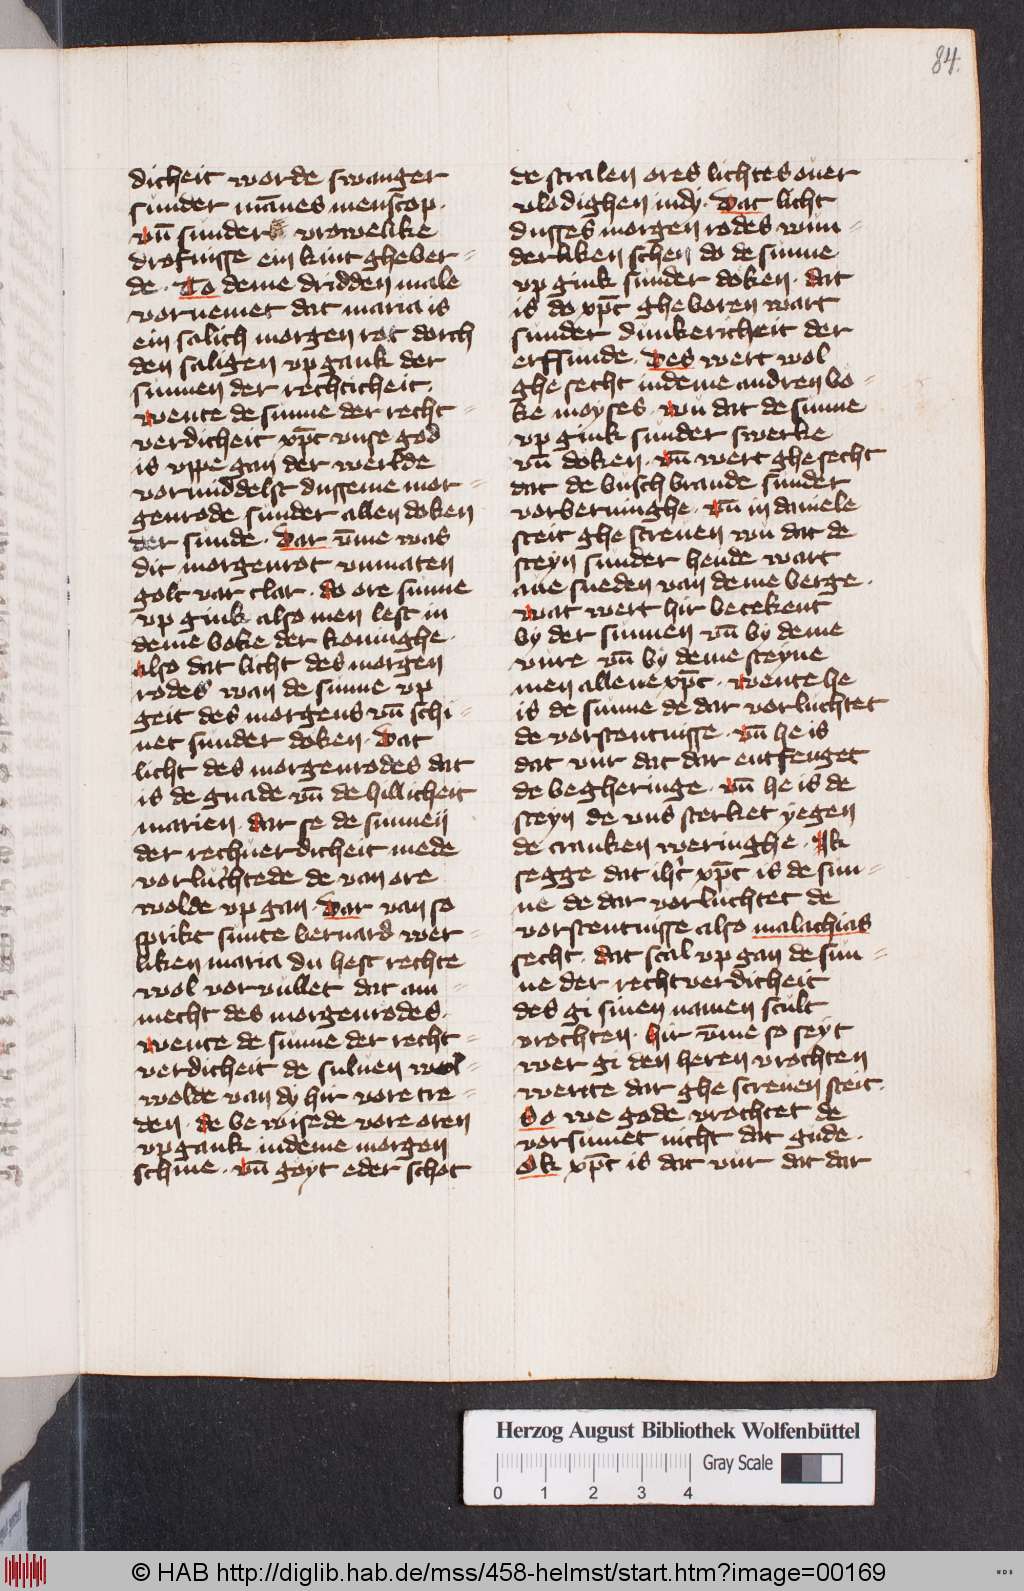 84.
dicheit worde swanger
sunder mānes menscop.
vn̄ sunder vrowelike
drofnisse ein kint gheber-
de. To deme dridden male
vornemet dat maria is
ein salich morgen rot dorch
den saligen vp gank der
sunnen der rechticheit.
wente de sunne der recht-
verdicheit xp̄c vnse god
is vppe gan der werlde
vormiddelst dusseme mor-
genrode sunder allen doken
der sunde. Dar v̄me was
dit morgenrot vnmaten
golt var clar. do ore sunne
vp gink also men lest in
deme boke der koninghe.
also dat licht des morgen
rodes wan de sunne vp
geit des morgens vn̄ schi-
net sunder doken. Dat
licht des morgenrodes dat
is de gnade vn̄ de hillicheit
marien. dar se de sunnen
der rechuerdicheit mede
vorluchtede de van ore
wolde vp gan. Dar van so
sprikt sunte bernard wer-
liken maria du hest rechte
wol vorvullet dat am-
mecht des morgenrodes.
wente de sunne der recht-
verdicheit de suluen wol-
wolde van dy hir vore tre-
den. de bewisede vore oren
vpgank indeme morgen
schine. vn̄ goyt eder schot
de stralen ores lichtes ouer
vlodighen in dy. Dat licht
dusses morgen rodes wun-
derliken schen do de sunne
vp gink sunder doken. dat
is do xp̄c gheboren wart
sunder dunkericheit der
erfsunde. Des wert wol
ghesecht indeme andren bo-
ke moyses. wu dat de sunne
vp gink sunder swerke
vn̄ doken. vn̄ wert ghesecht
dat de busch brande sunder
vorberninghe. vn̄ in daniele
steit ghescreuen wu dat de
steyn sunder hende wart
aue sneden van deme berge.
wat wert hir betekent
by der sunnen vn̄ by deme
vure vn̄ by deme steyne
men allene xp̄c. wente he
is de sunne de dar vorluchtet
de vorstentnisse. vn̄ he is
dat vur dat dar entfenget
de begheringe. vn̄ he is de
steyn de vns sterket yegen
de cranken weringhe. Ik
segge dat ih̄c xp̄c is de sun-
ne de dar vorluchtet de
vorstentnisse also malachias
secht. dat scal vp gan de sun-
ne der rechtverdicheit
des gi sinen namen scult
vrochten. hir v̄me so seyt
wer gi den heren vrochten
wente dar ghescreuen steit.
So we gode vrochtet de
vorsumet nicht dat gude.
Ok xp̄c is dat vur dat dar
Herzog August Bibliothek Wolfenbüttel
Gray Scale
0 1 2 3 4
© HAB http://diglib.hab.de/mss/458-helmst/start.htm?image=00169